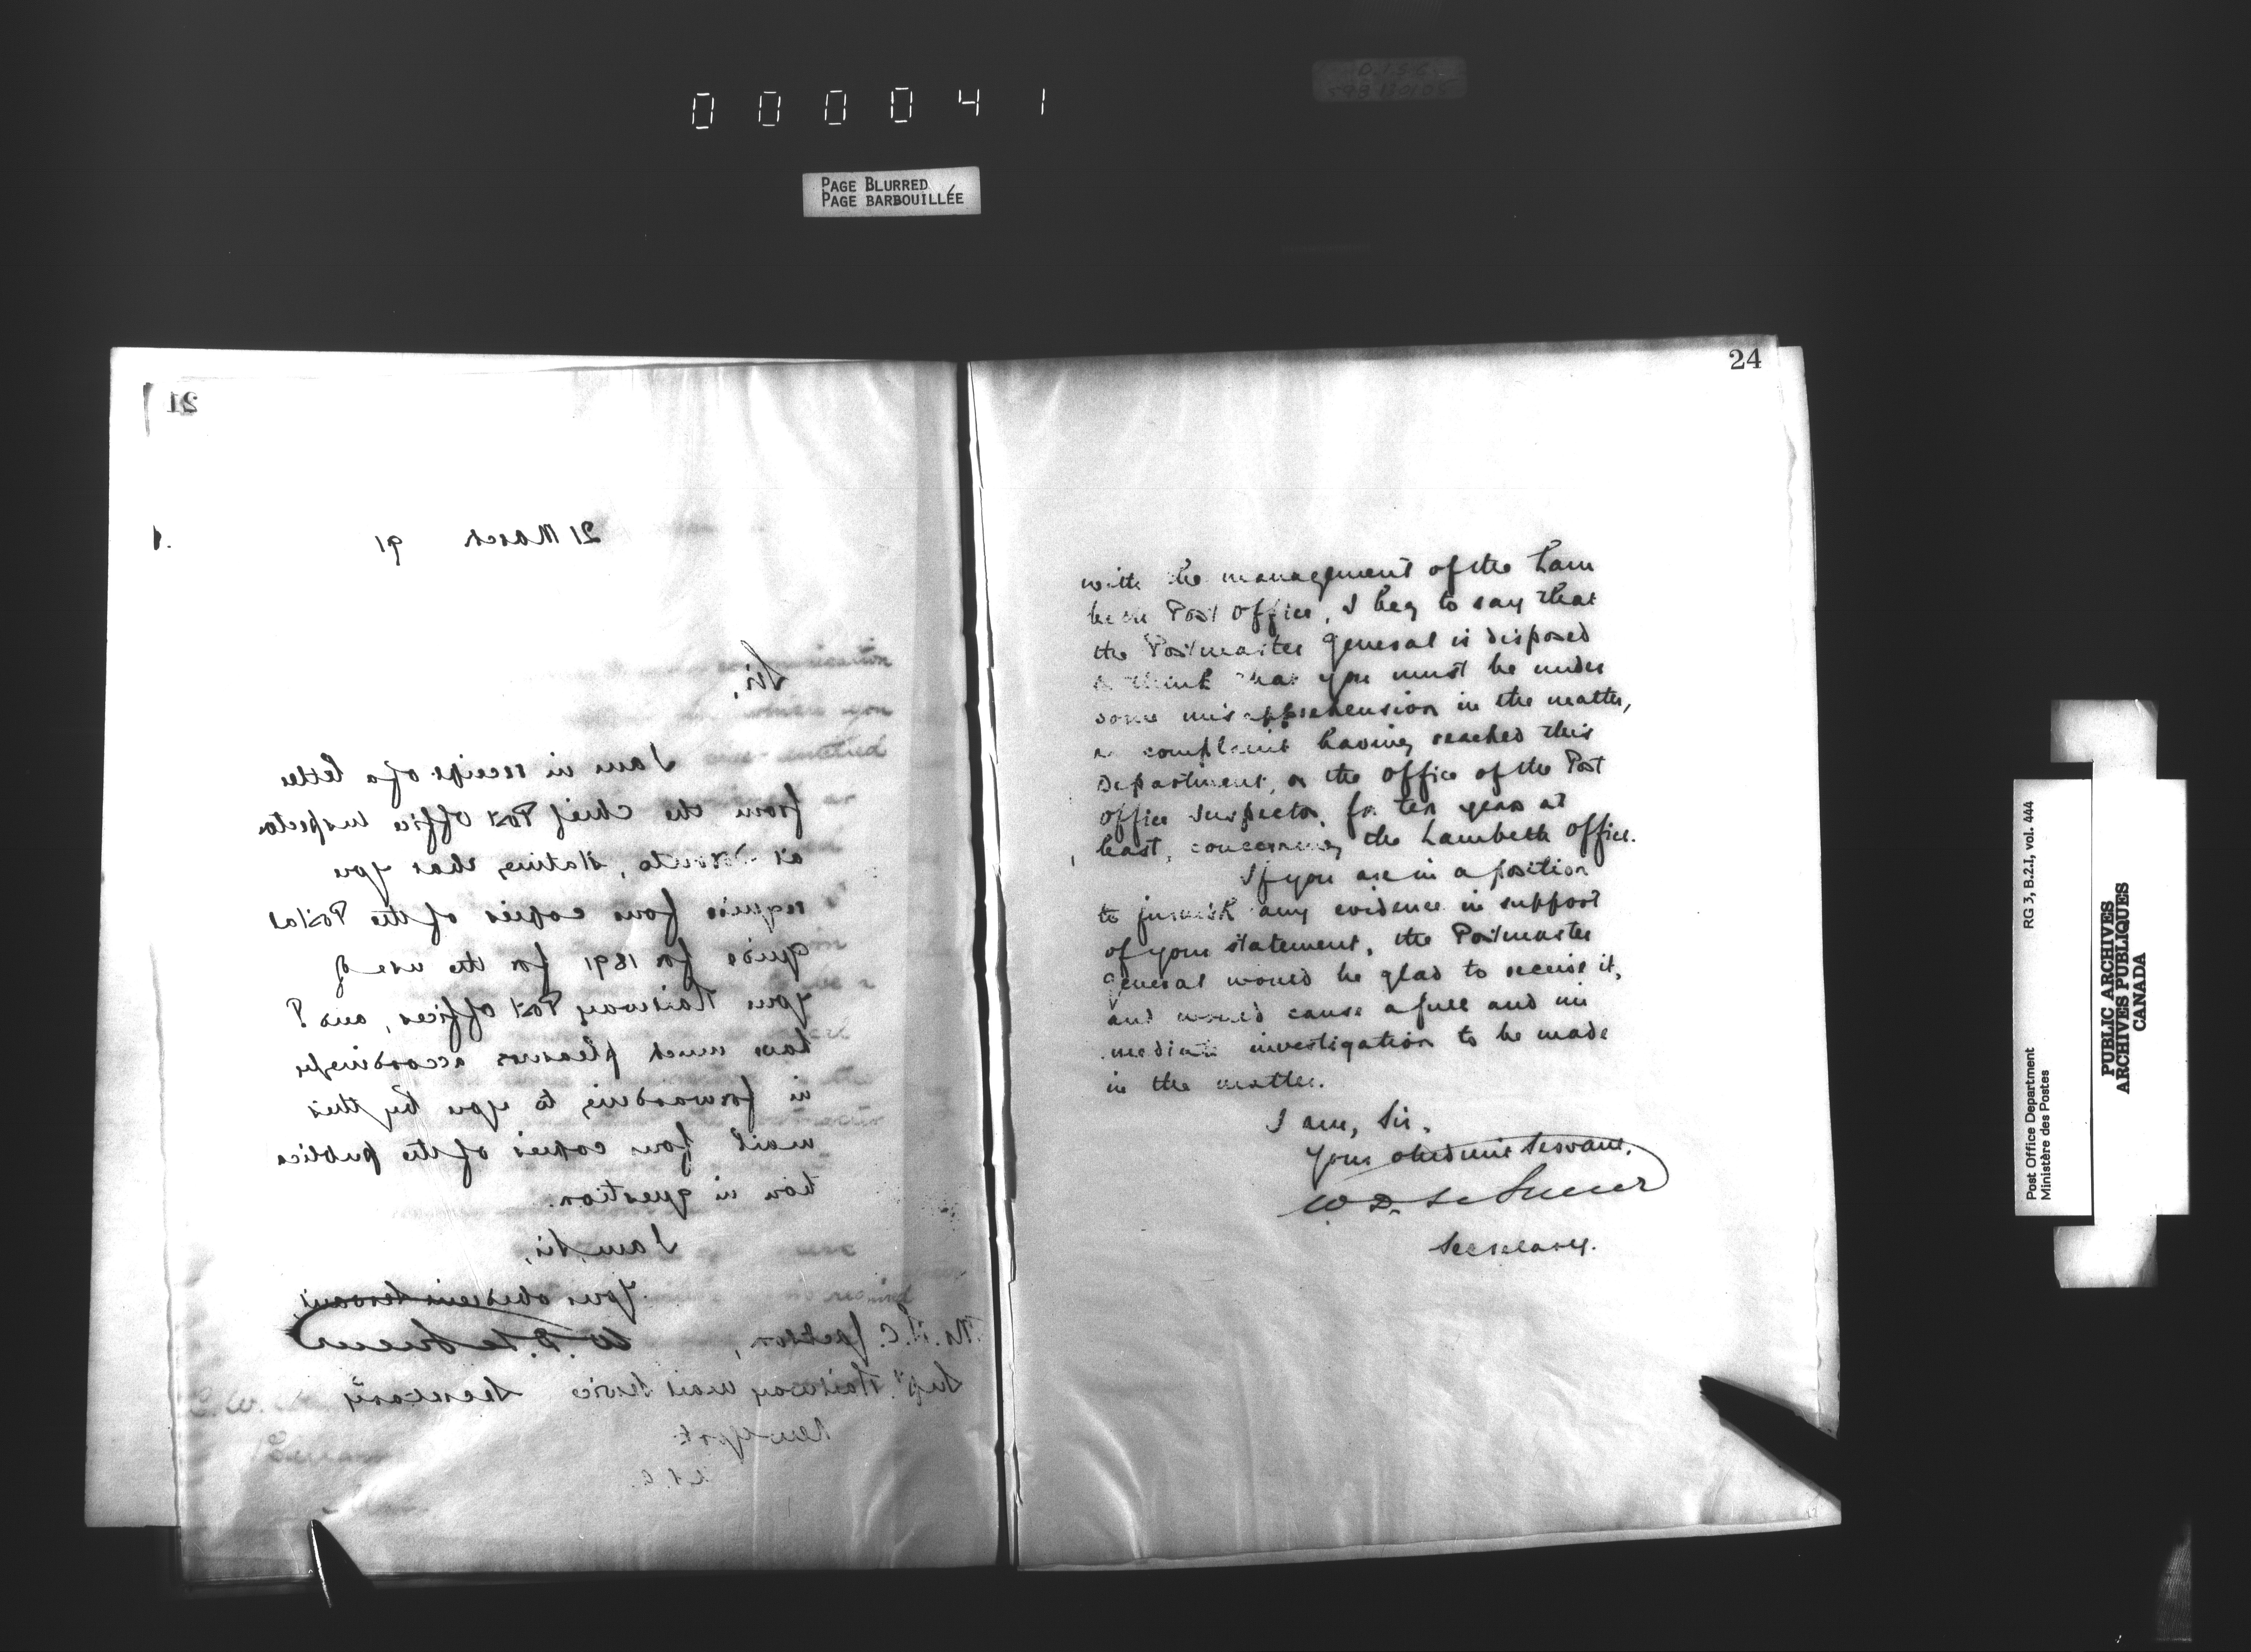 000041
PAGE BLURRED
PAGE BARBOUILLÉE
21
21 March 91
Sir,
I am in receipt of a letter
from the Chief Post Office Inspector
at Toronto, stating that you
require four copies of the Postal
Guide for 1891 for the use of
your Railway Post Offices, and I
have much pleasure accordingly
in forwarding to you by this
mail four copies of the publica
tion in question.
I am, Sir,
Your obedient Servant,
W. D. LeSueur
Secretary
Mr. C. Jackson,
Supt. Railway Mail Service
New York
U.S.A.
24
with the management of the Lam
beth Post Office, I beg to say that
the Postmaster General is disposed
to think that you must be under
some misapprehension in the matter,
no complaint having reached this
Department, or the Office of the Post
Office Inspector, for ten years at
least, concerning the Lambeth Office.
If you are in a position
to furnish any evidence in support
of your statement, the Postmaster
General would be glad to receive it,
and would cause a full and im
mediate investigation to be made
in the matter.
I am, Sir,
Your obedient Servant,
W D. LeSueur
Secretary.
Post Office Department
Ministère des Postes
RG 3, B.2.I, vol. 444
PUBLIC ARCHIVES
ARCHIVES PUBLIQUES
CANADA